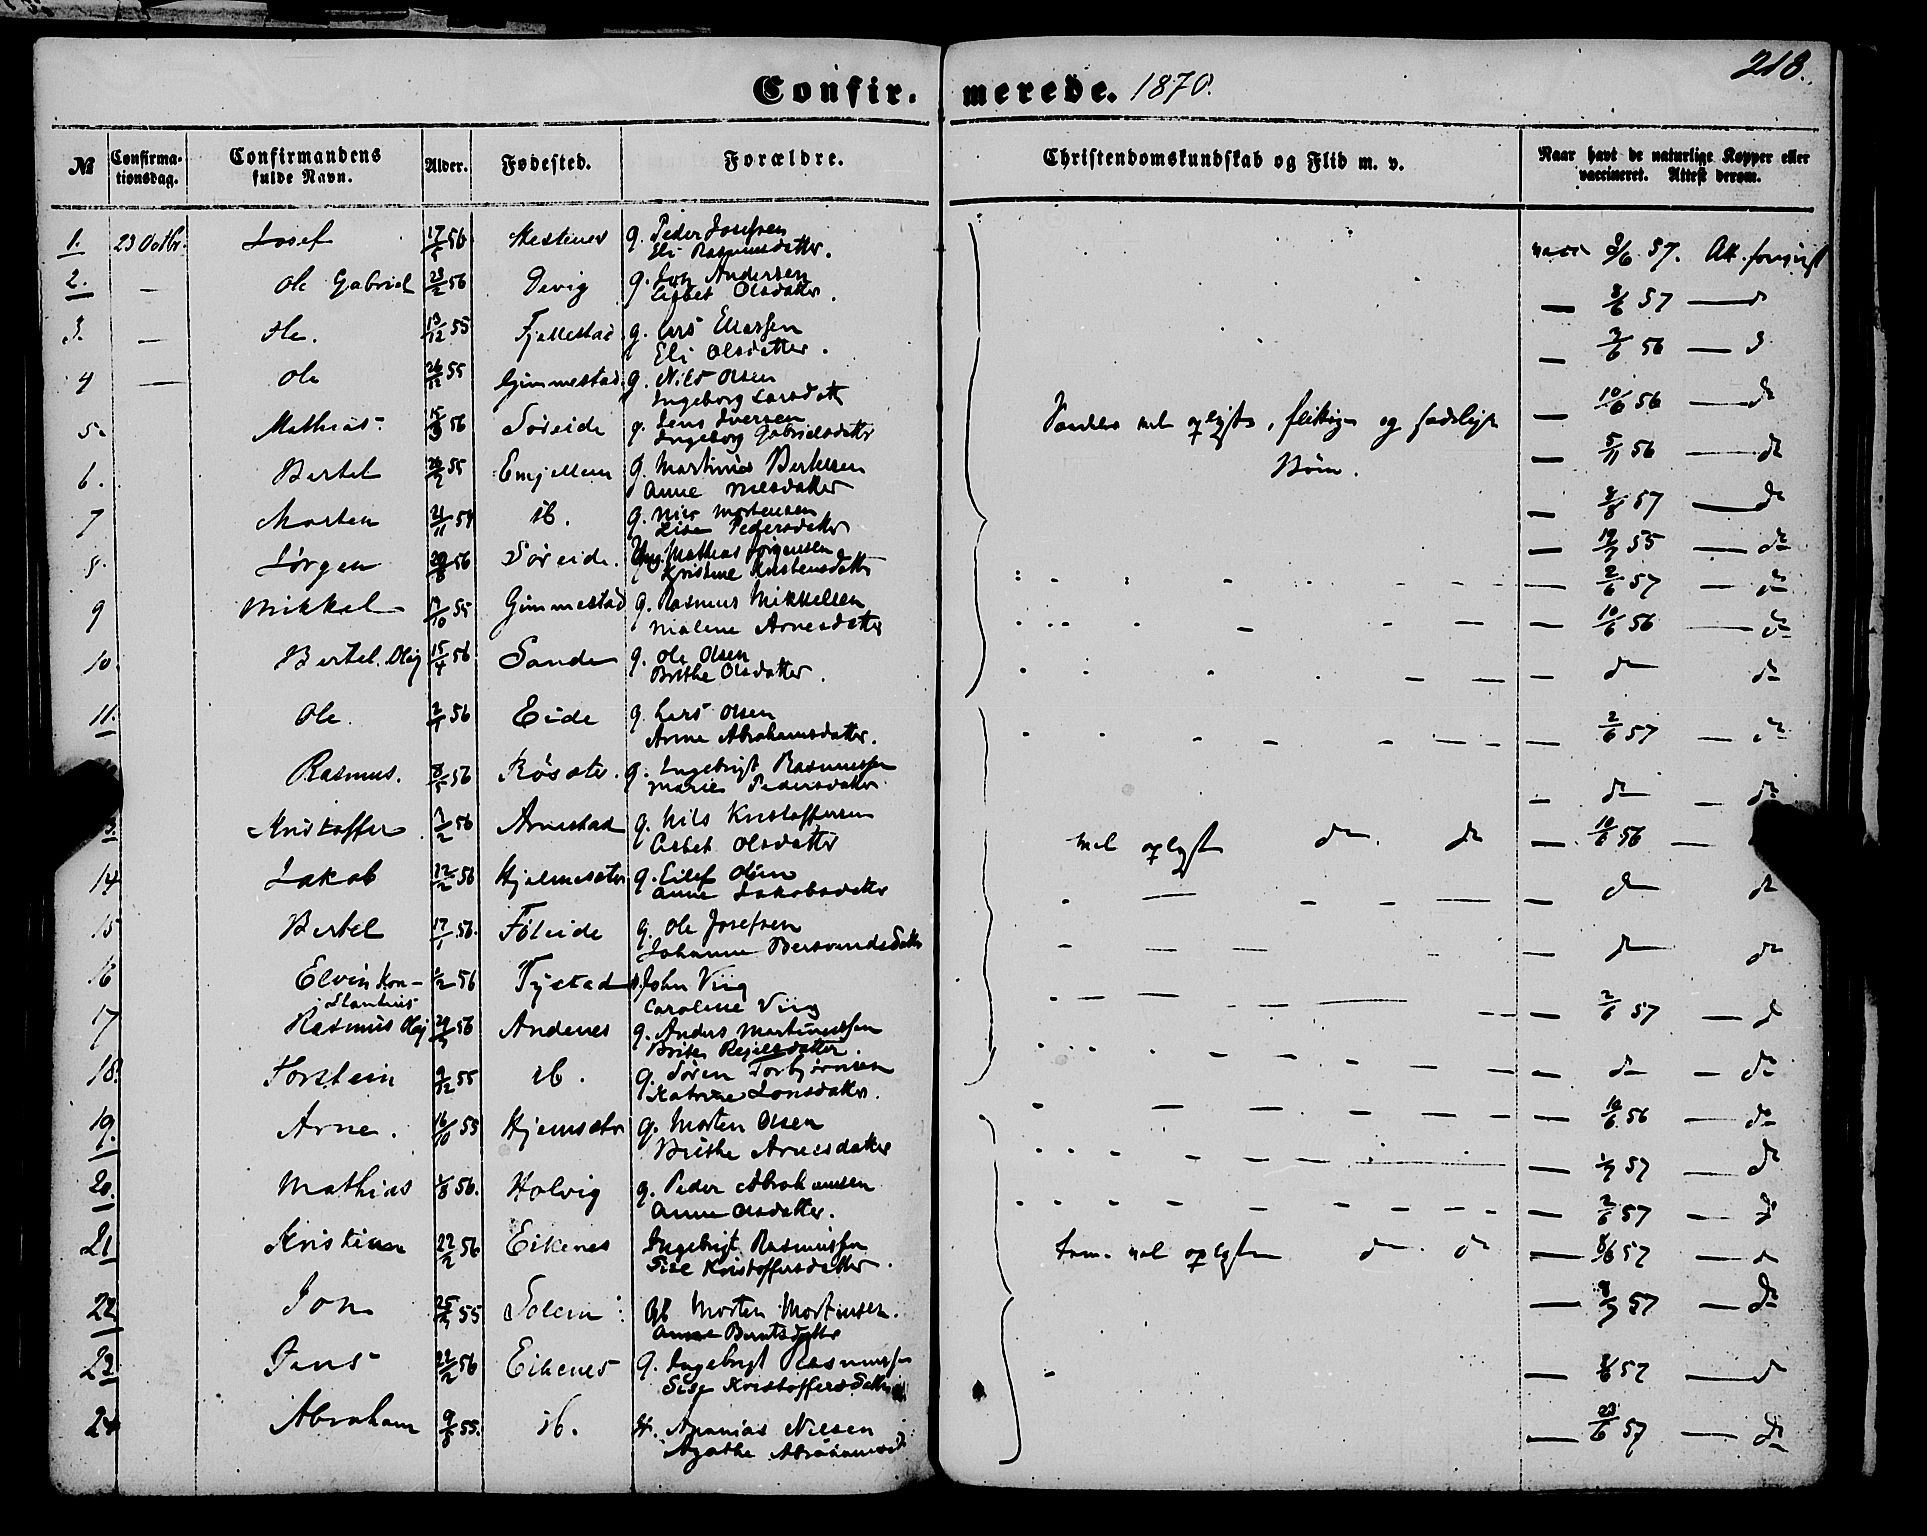 218.
Confir. merede. 1870.
№ Confirmationsdag. Confirmandens fulde Navn. Alder. Fødested. Forældre. Christendomskundskab og Flid m. v. Naar havt de naturlige Kopper eller vaccineret. Attest derom.
1. 23 Octbr. Josef 17/5 56 Hestenes g. Peder Josefsen
Eli Rasmusdatter. vacc 2/6 57. Att.
2. — Ole Gabriel 23/2 56 Devig g. Jon Andersen
Lisbet Olsdatter. — 2/6 57 — d
3. — Ole. 13/12 55 Fjellestad g. Lars Eliassen
Eli Olsdatter. — 2/6 56 — d
4 — Ole 26/12 55 Gimmestad g. Nils Olsen
Ingeborg Larsdatt — 10/6 56 — do
5. Mathias 15/3 56 Søreide g. Jens Iversen
Ingeborg Gabrielsdatter — 5/11 56 — do
Særdeles vel oplyste, flittige og sædelige
Børn.
6. Bertel 55 Emjellem g. Martinus Bertelsen
Anne Nilsdatter — 57 — do
7 Morten 21/11 54 ib. g. Nils Mortensen
Lise Pedersdatter — 55 — do
8. Jørgen 56 Søreide. Mathias Jørgensen
Kristine Kristensdatter — 2/6 57 — do
9 Mikkel 55 Gimmestad g. Rasmus Mikkelsen
Malene Arnesdatter — 10/6 56 — do
10. Bertel Olaj 15/4 56 Sande g. Ole Olsen
Brithe Olsdatter. — do do
11. Ole. 56 Eide g. Lars Olsen
Anne Abrahamsdatter. — 2/6 57 — do
Rasmus. 8/5 56 Røsæter. g. Ingebrigt Rasmussen
Marie Pedersdatter — do — do
3. Kristoffer 56 Arnestad g. Nils Kristoffersen
Lisbet Olsdatter vel oplyste do. do — 10/6 56 —
14 Jakob 12/2 56 Hjelmesæter g. Eilef Olsen
Anne Jakobsdatter — do do
15 Bertel 17/1 56. Føleide g. Ole Josefsen
Johanne — do do
16 Elvin Kon-
stantius 56 Tystad John Viig
Caroline Viig — 2/6 57 — d
17 Rasmus Olaj 56 Andenes g. Anders Martinussen
Brite — do — do
18. Torstein 9/12 55 ib. g. Søren Torbjørnsen
Katrine Jonsdatter. — 10/6 56 — do
19. Arne. 16/10 55 Hjemsæter g. Morten Olsen
Brithe Arnesdatter — 57 — do
20. Mathias 56. Holvig g. Peder Abrahamsen
Anne Olsdatter. — 2/6 57 — d
21 Kristian 22/2 56 Eikenes Ingebrigt Rasmussen
Sise Kristoffersdatter. Tem. vel oplyste do. do — 8/6 57 — d
22 Jon 55 Solem Morten Mortensen.
Anne Berntsdatter — 57 — do
23 Jens 22/2 56 Eikenes g. Ingebrigt Rasmussen
Sise Kristoffersdatter — 57 — d
24 Abraham 55. ib. Ananias Nilsen
Agathe Abrahamsd — 57 — do